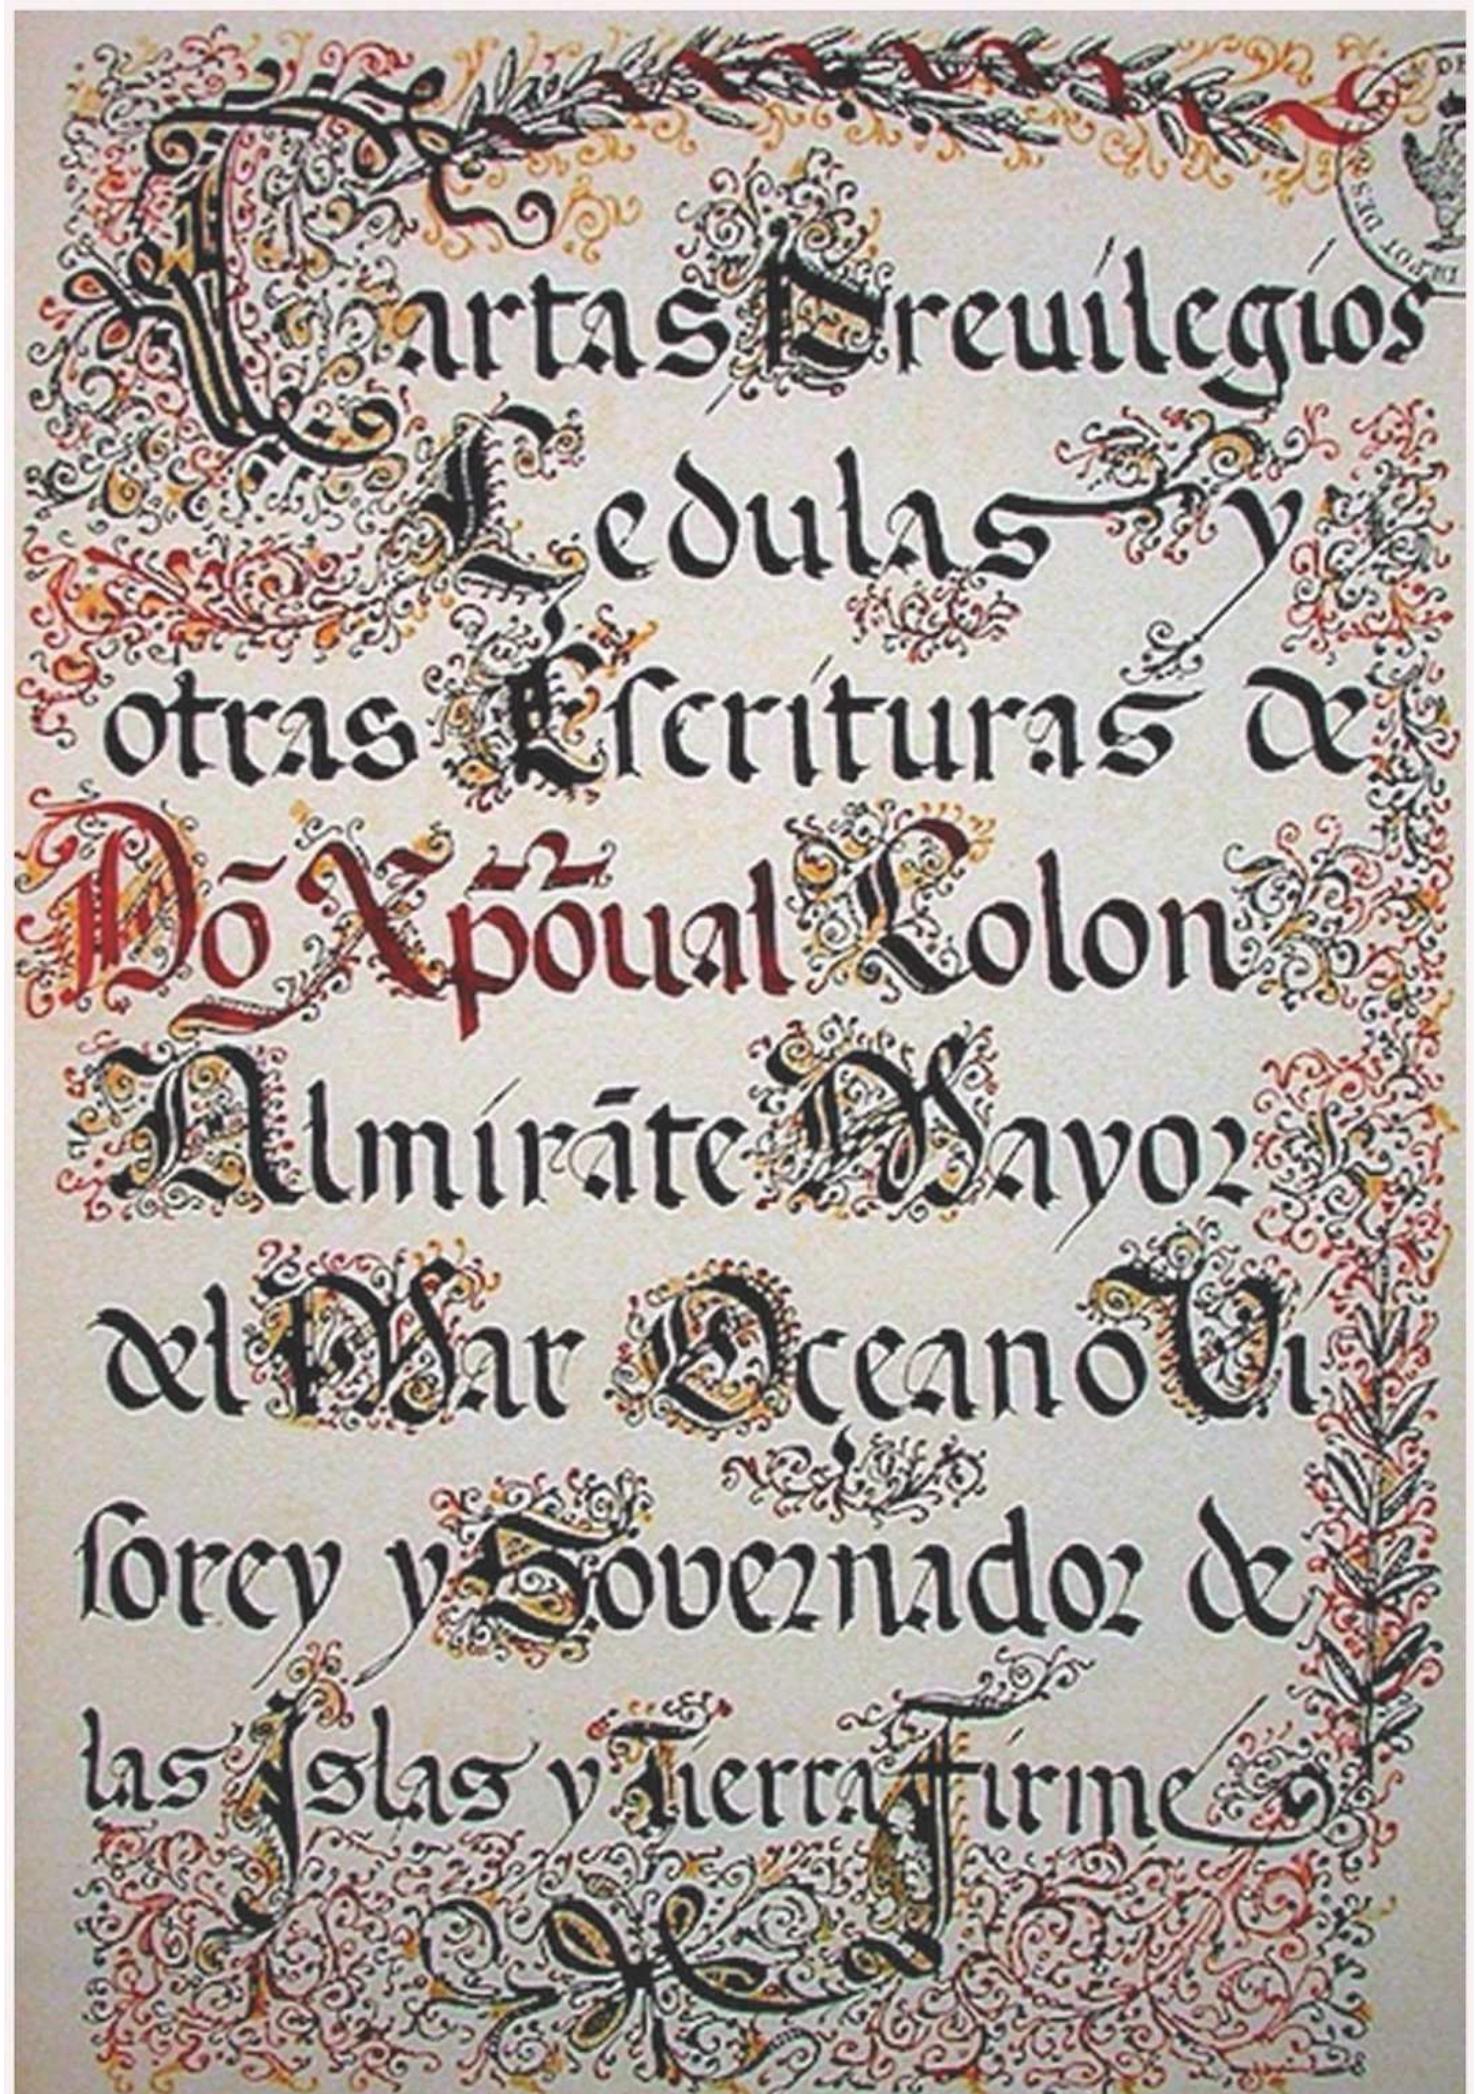 Cartas Preuilegios
Cedulas y
otras Escrituras de
Dō Xp̄oual Colon
Almirāte Mayor
del Mar Oceano Vi
sorey y Governador de
las Islas y Tierra Firme